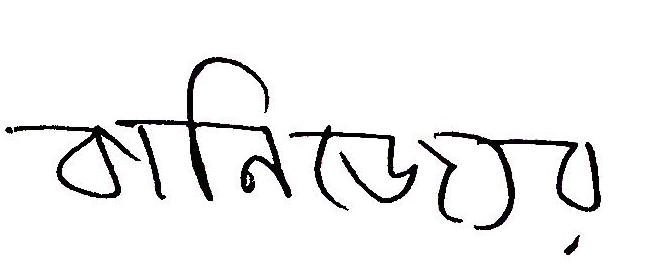 বানিজ্যের